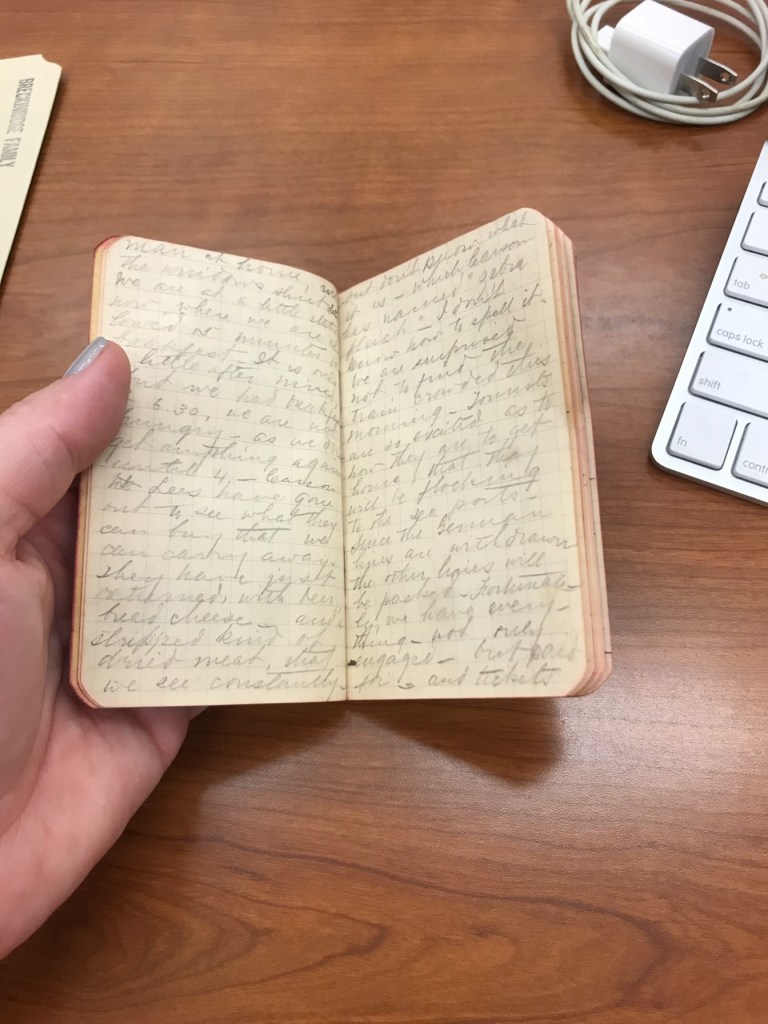 BRECKINRIDGE FAMILY
man at home,
the windows shut
We are at a little
now, where we are
breakfast - It is
little after nine
we had
6.30, we are not
hungry - as we
get anything again
until 4, - Carson
have gone
out to see what they
can buy that we
can carry away.
They have just
returned, with
bread cheese - and
stripped kind of
dried meat, that
we see constantly
and don't know what
it is - which Carson
has named "zebra
flesh" I don't
know how to spell it.
We are surprised
not to find the
train crowded this
morning - Tourists
are so excited as to
how they are to get
home, that they
will be flocking
to the sea ports -
Since the German
lines are withdrawn
the other lines will
be packed - Fortunate-
ly we have every-
thing - not only
engaged - but paid
for - and tickets
tab
caps lock
shift
fn
cont